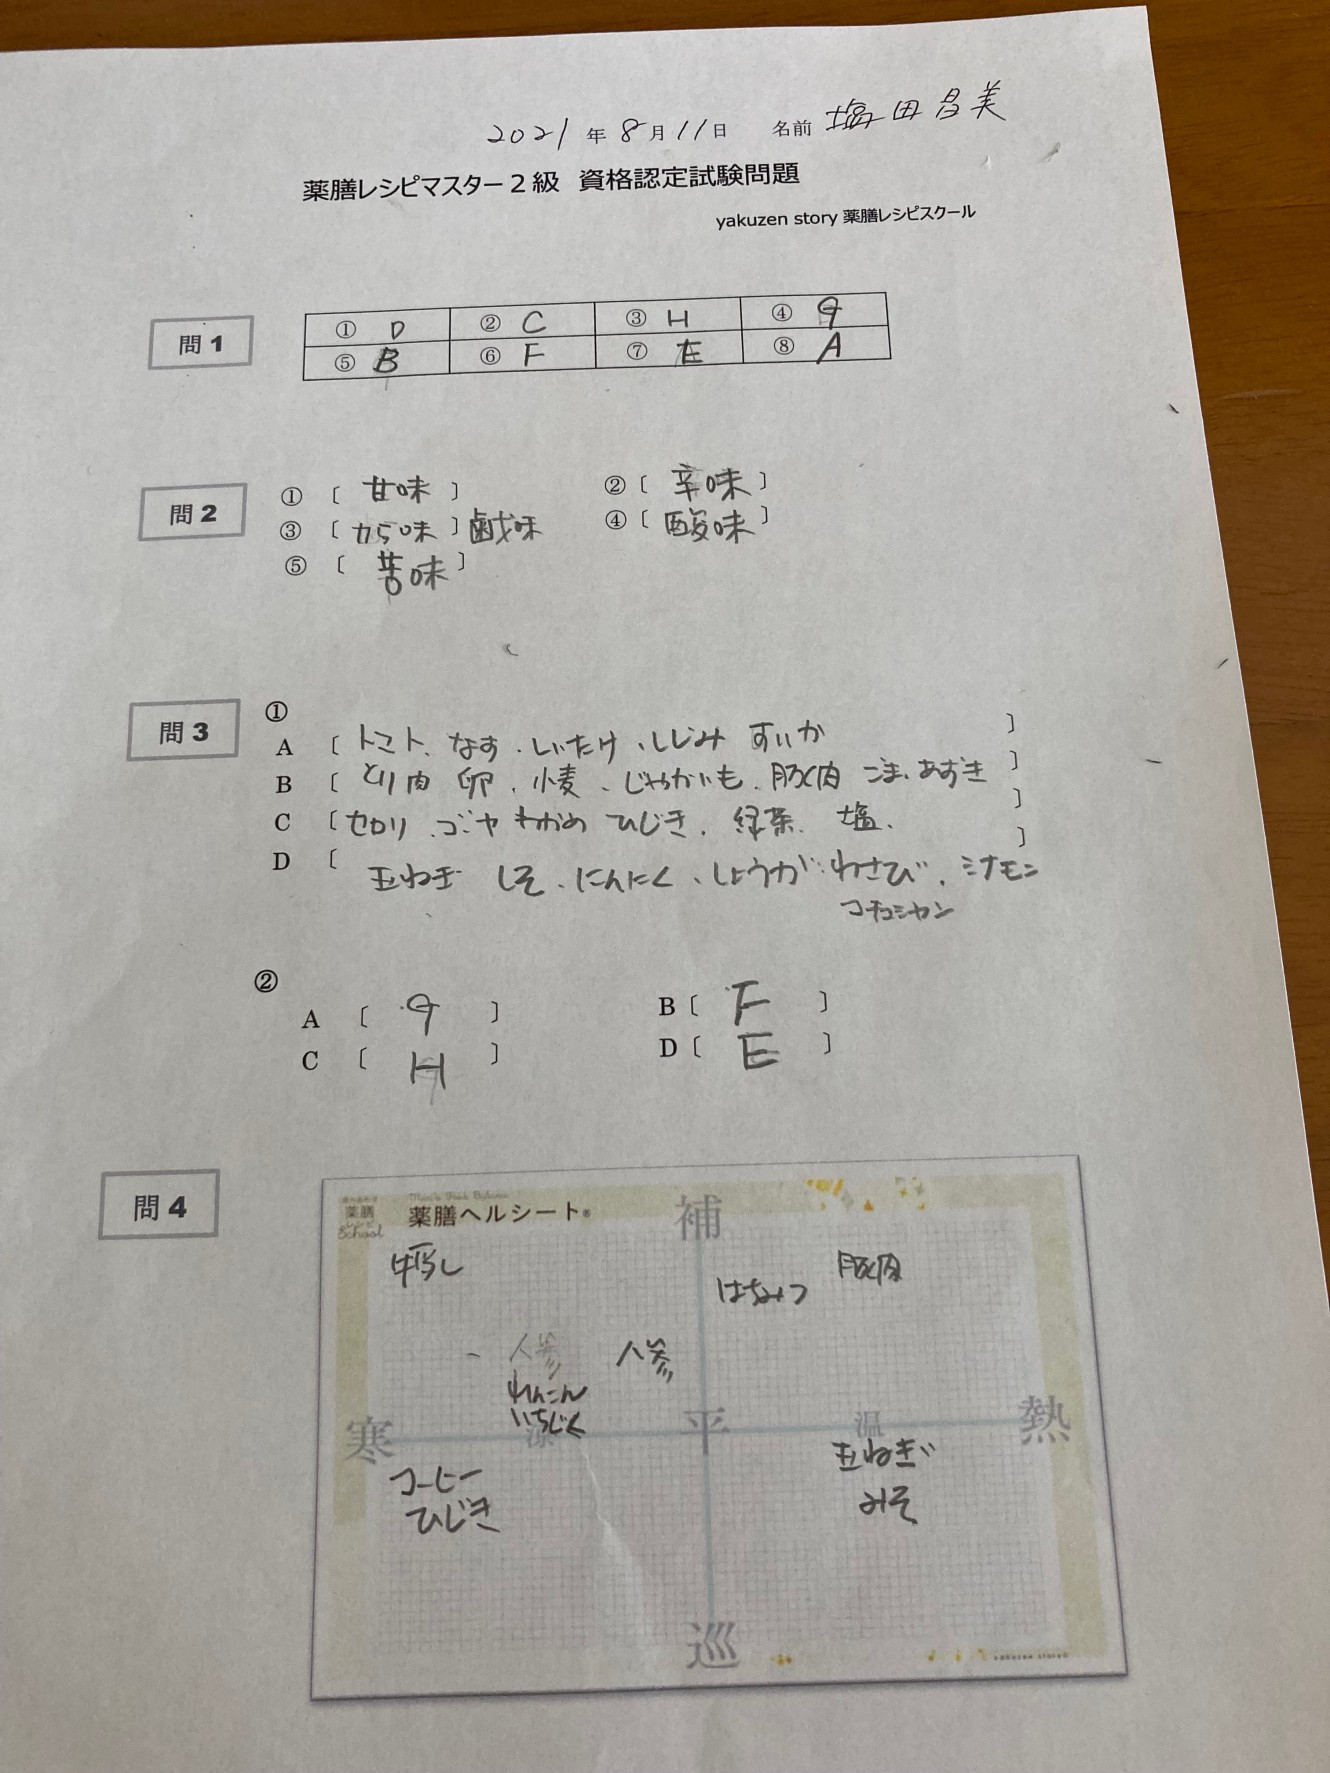 2021年8月11日 名前 塩田昌美
薬膳レシピマスター2級 資格認定試験問題
yakuzen story 薬膳レシピスクール
問1
① D ② C ③ H ④ G
⑤ B ⑥ F ⑦ E ⑧ A
問2
① 〔 甘味 〕 ② 〔 辛味 〕
③ 〔 から味 〕 鹹味 ④ 〔 酸味 〕
⑤ 〔 苦味 〕
問3
①
A 〔 トマト、なす、しいたけ、しじみ すいか 〕
B 〔 とり肉 卵、小麦、じゃがいも、豚肉 ごま、あずき 〕
C 〔 セロリ、ゴーヤ わかめ ひじき、緑茶、塩、 〕
D 〔 玉ねぎ しそ、にんにく、しょうが わさび、シナモン 〕
コチュジャン
②
A 〔 G 〕 B 〔 F 〕
C 〔 H 〕 D 〔 E 〕
問4
薬膳 School
薬膳ヘルシート®
補
豚肉
はちみつ
人参 人参
れんこん
いちじく
寒 涼 平 温 熱
コーヒー 玉ねぎ
ひじき みそ
巡